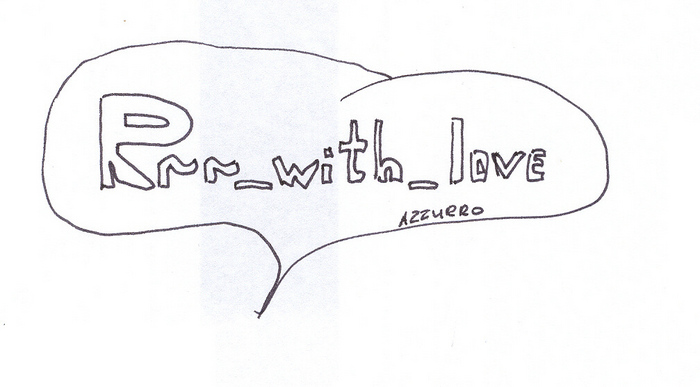 Rrr_with_love
AZZURRO